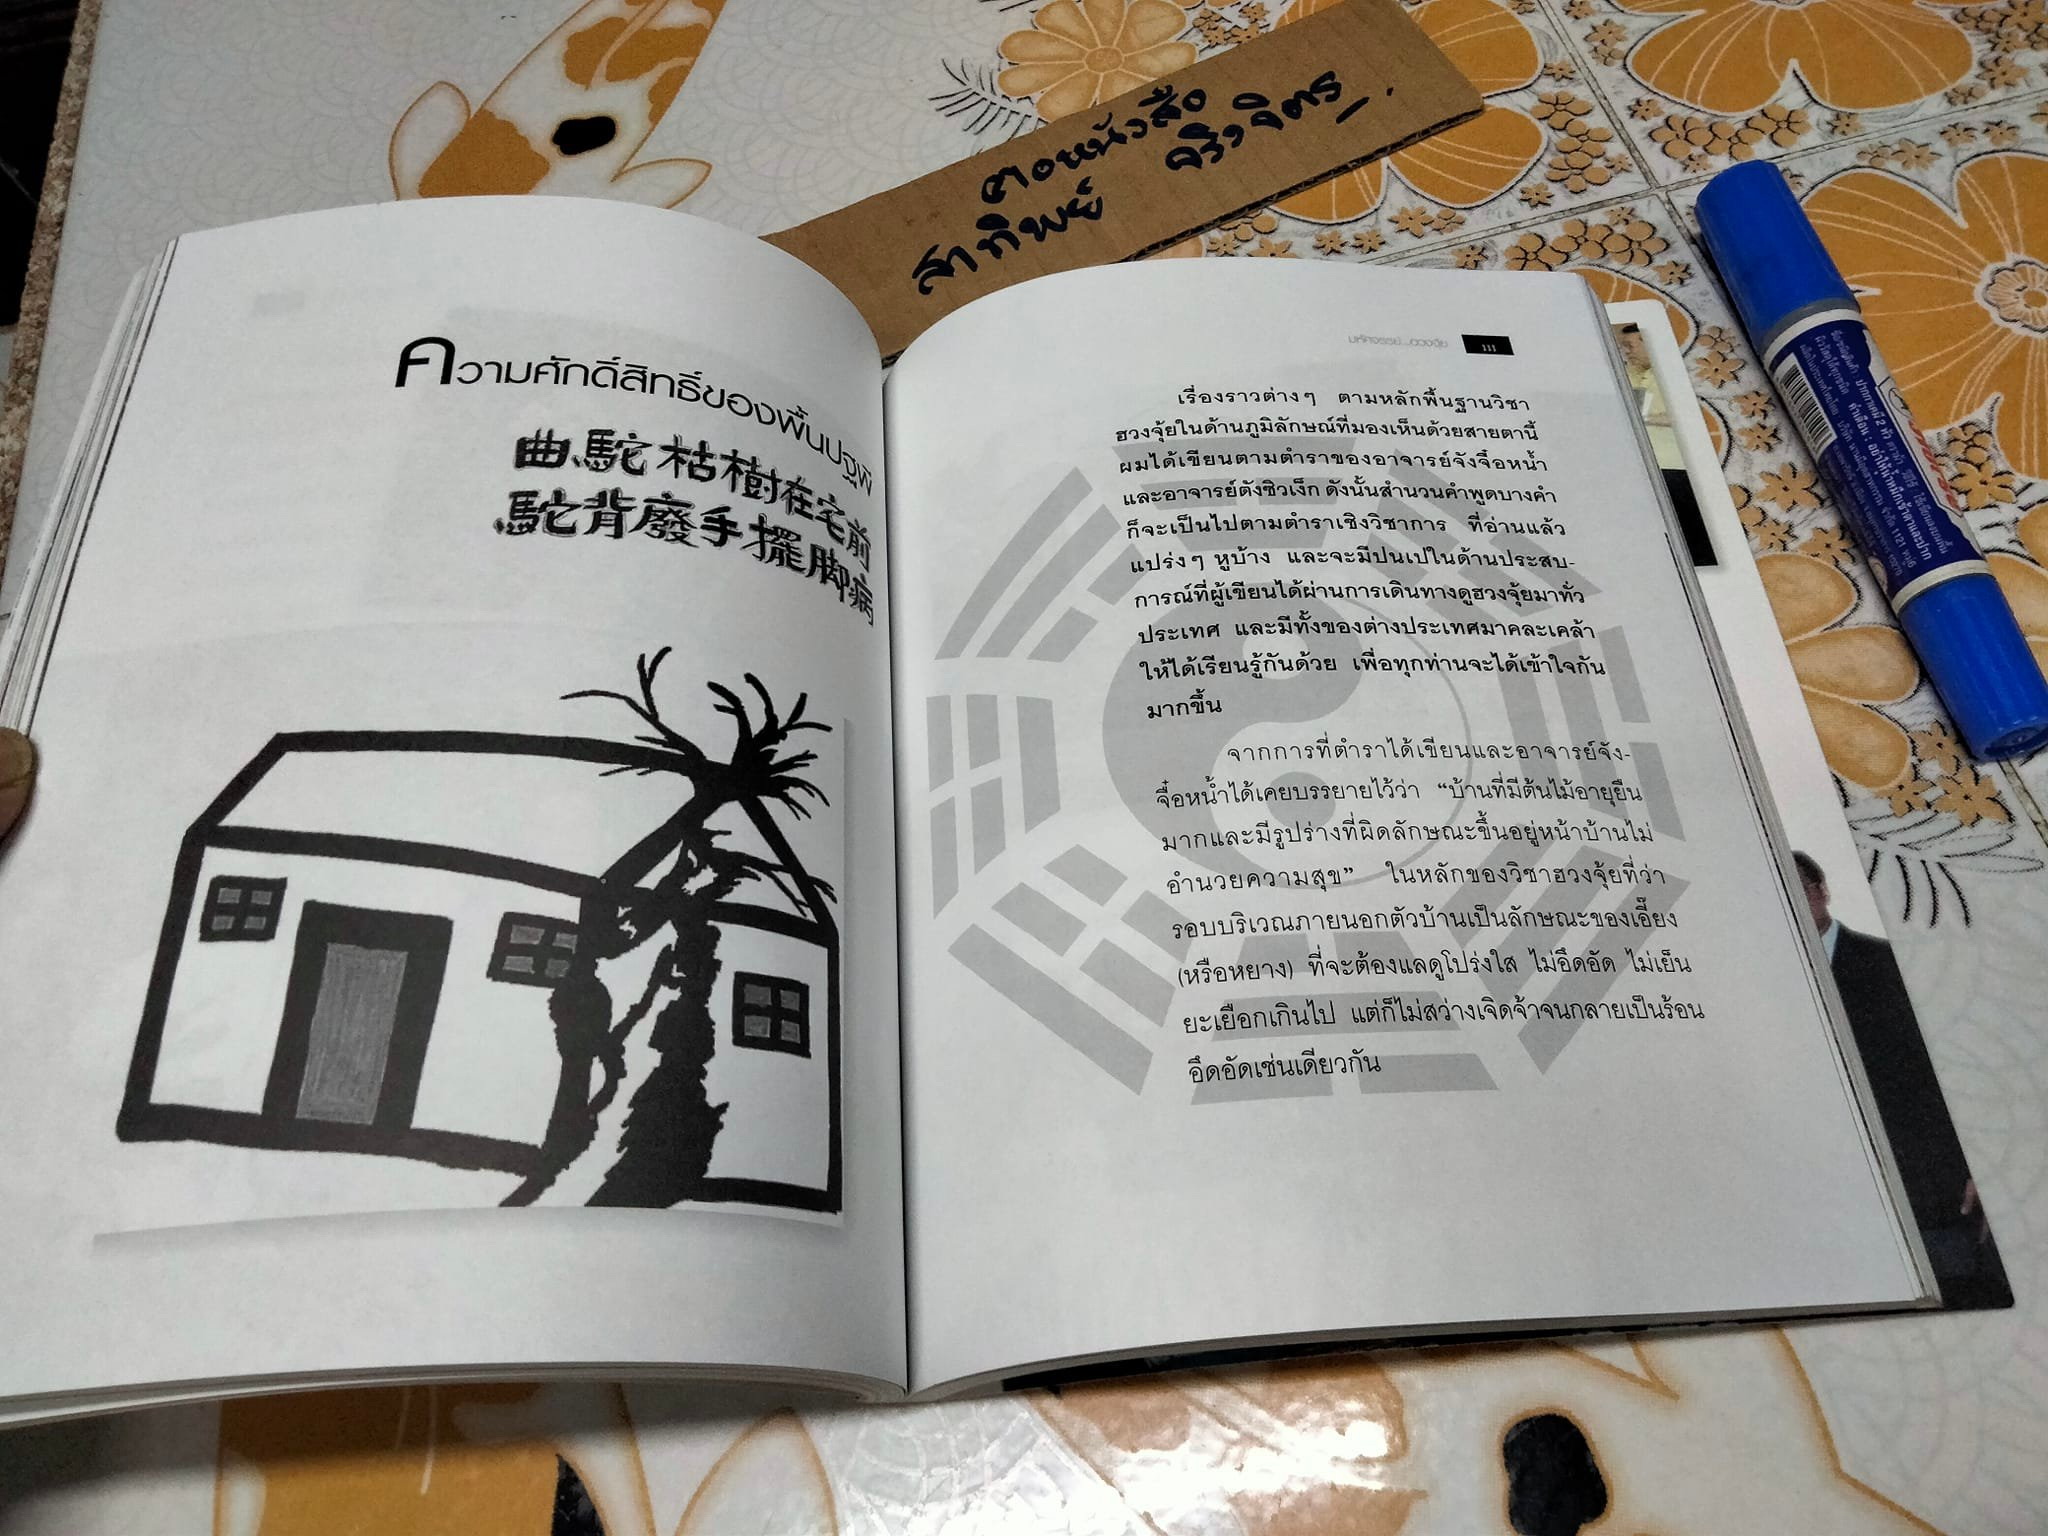 คอหนังสือ
สาทิพย์ จริงจิตร
ความศักดิ์สิทธิ์ของพื้นปฐพี
曲駝枯樹在宅前
駝背廢手擺脚病
มหัศจรรย์...ฮวงจุ้ย
เรื่องราวต่างๆ ตามหลักพื้นฐานวิชา
ฮวงจุ้ยในด้านภูมิลักษณ์ที่มองเห็นด้วยสายตานี้
ผมได้เขียนตามตำราของอาจารย์จังจื๋อหน้ำ
และอาจารย์ตังซิวเง็ก ดังนั้นสำนวนคำพูดบางคำ
ก็จะเป็นไปตามตำราเชิงวิชาการ ที่อ่านแล้ว
แปร่งๆ หูบ้าง และจะมีปนเปในด้านประสบ-
การณ์ที่ผู้เขียนได้ผ่านการเดินทางดูฮวงจุ้ยมาทั่ว
ประเทศ และมีทั้งของต่างประเทศมาคละเคล้า
ให้ได้เรียนรู้กันด้วย เพื่อทุกท่านจะได้เข้าใจกัน
มากขึ้น
จากการที่ตำราได้เขียนและอาจารย์จัง-
จื๋อหน้ำได้เคยบรรยายไว้ว่า “บ้านที่มีต้นไม้อายุยืน
มากและมีรูปร่างที่ผิดลักษณะขึ้นอยู่หน้าบ้านไม่
อำนวยความสุข” ในหลักของวิชาฮวงจุ้ยที่ว่า
รอบบริเวณภายนอกตัวบ้านเป็นลักษณะของเอี๊ยง
(หรือหยาง) ที่จะต้องแลดูโปร่งใส ไม่อึดอัด ไม่เย็น
ยะเยือกเกินไป แต่ก็ไม่สว่างเจิดจ้าจนกลายเป็นร้อน
อึดอัดเช่นเดียวกัน
ปากกาเคมี 2 หัว